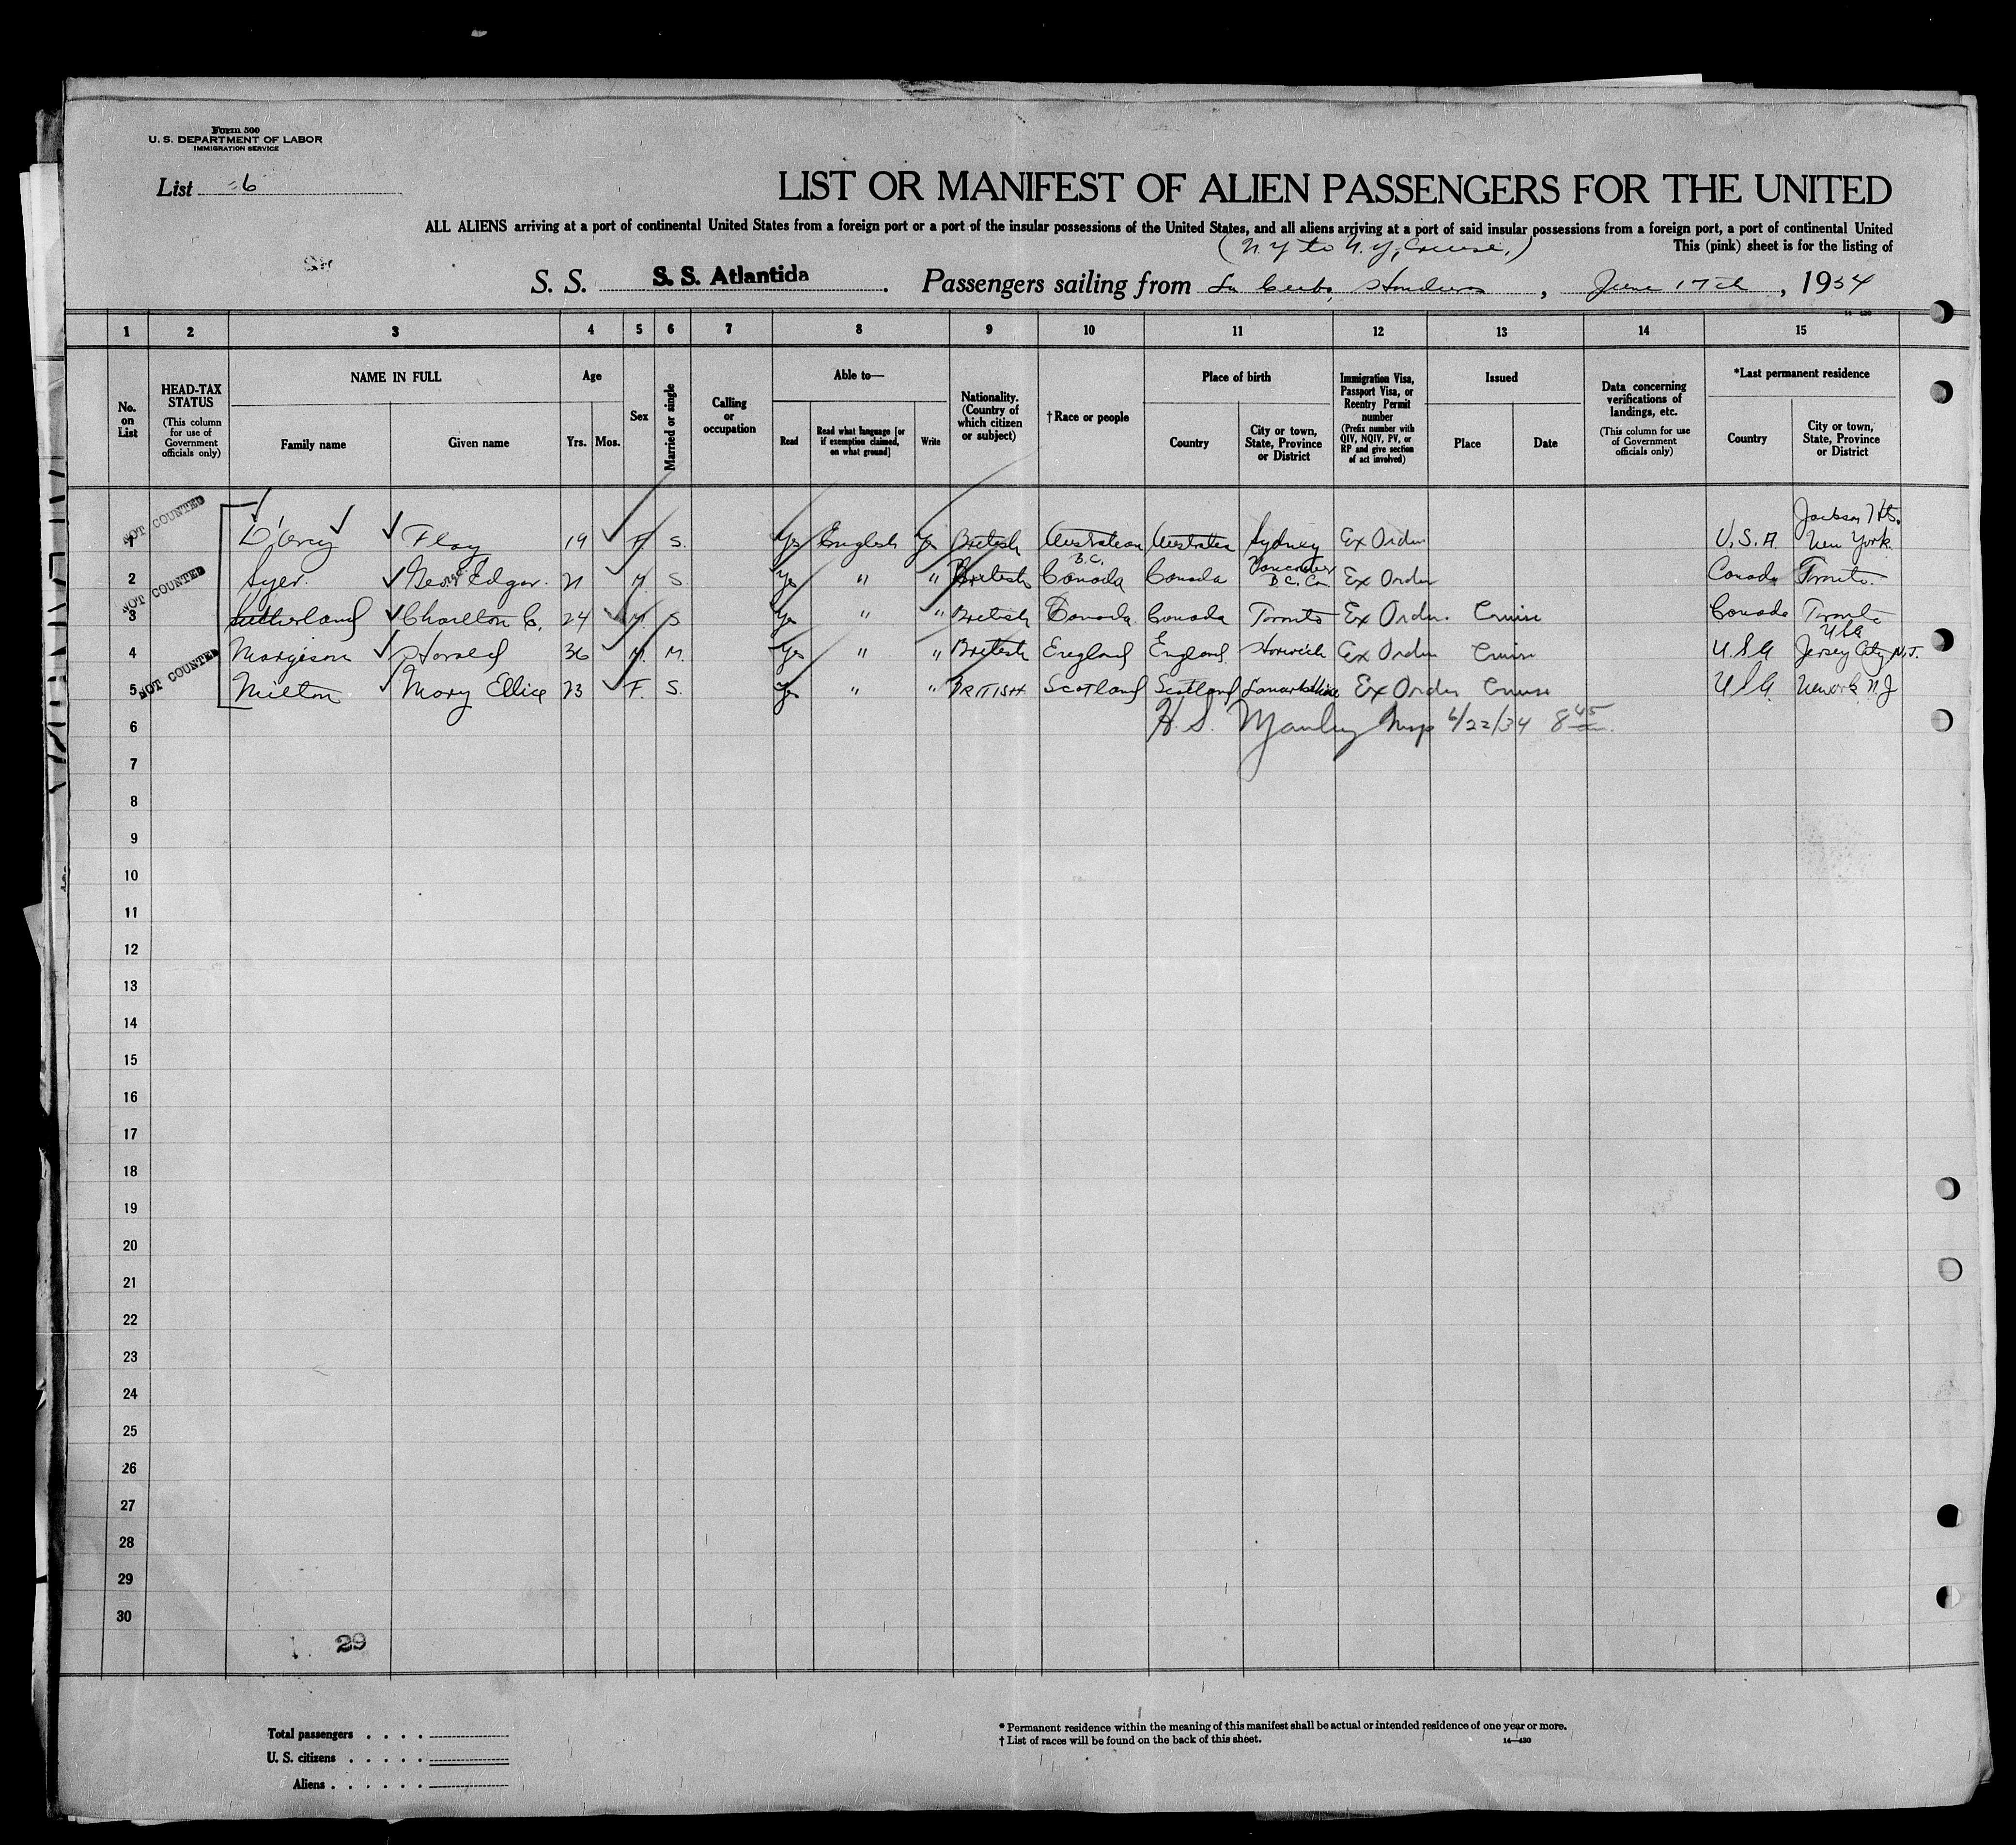 Form 500
U. S. DEPARTMENT OF LABOR
IMMIGRATION SERVICE
List 6
LIST OR MANIFEST OF ALIEN PASSENGERS FOR THE UNITED
ALL ALIENS arriving at a port of continental United States from a foreign port or a port of the insular possessions of the United States, and all aliens arriving at a port of said insular possessions from a foreign port, a port of continental United
(N.Y to N.Y, Cruise,)
This (pink) sheet is for the listing of
S. S. S. S. Atlantida. Passengers sailing from La Ceiba, Honduras, June 17th, 1934
14—430
1 2 3 4 5 6 7 8 9 10 11 12 13 14 15
No. on List
HEAD-TAX STATUS
(This column for use of Government officials only)
NAME IN FULL
Family name Given name
Age
Yrs. Mos.
Sex
Married or single
Calling or occupation
Able to—
Read Read what language [or if exemption claimed, on what ground] Write
Nationality. (Country of which citizen or subject)
† Race or people
Place of birth
Country City or town, State, Province or District
Immigration Visa, Passport Visa, or Reentry Permit number
(Prefix number with QIV, NQIV, PV, or RP and give section of act involved)
Issued
Place Date
Data concerning verifications of landings, etc.
(This column for use of Government officials only)
*Last permanent residence
Country City or town, State, Province or District
NOT COUNTED
1 D'Arcy Floy 19 F. S. Yes English Yes British Australian Australia Sydney Ex Order U.S.A. Jackson Hts. New York
NOT COUNTED
2 Ayer. George Edgar. 21 M S. Yes " " British B.C. Canada Canada Vancouver B.C. Can Ex Order Canada Toronto
3 Sutherland Charlton C. 24 M. S Yes " " British Canada Canada Toronto Ex Order. Cruise Canada Toronto
NOT COUNTED
4 Margison Harold 36 M. M. Yes " " British England England Horwich Ex Order Cruise USA USA Jersey City N.J.
5 Milton Mary Ellice 23 F. S. Yes " " BRITISH Scotland Scotland Lanarkshire Ex Order Cruise USA Newark N.J
6 H. S. Manley Insp 6/22/34 8 45 am.
7
8
9
10
11
12
13
14
15
16
17
18
19
20
21
22
23
24
25
26
27
28
29
30
29
Total passengers . . . .
U. S. citizens . . . . .
Aliens . . . . . .
* Permanent residence within the meaning of this manifest shall be actual or intended residence of one year or more.
† List of races will be found on the back of this sheet.
14—430